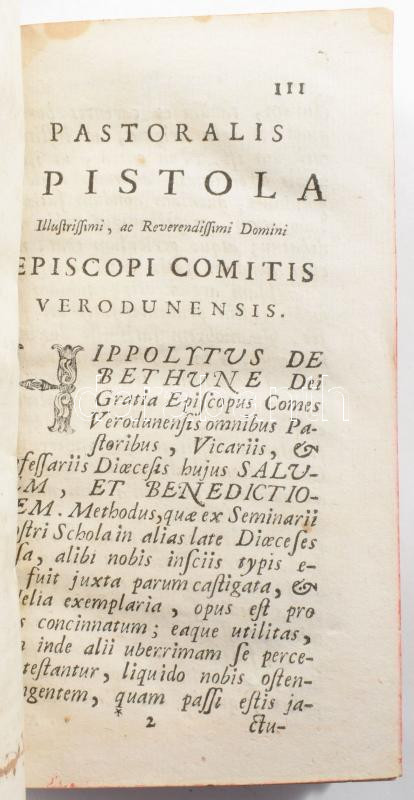 III
PASTORALIS
PISTOLA
Illustrissimi, ac Reverendissimi Domini
EPISCOPI COMITIS
VERODUNENSIS.
HIPPOLYTUS DE
BETHUNE Dei
Gratia Episcopus Comes
Verodunensis omnibus Pa-
storibus, Vicariis, &
fessariis Diœcesis hujus SALU-
EM, ET BENEDICTIO-
EM. Methodus, quæ ex Seminarii
ostri Schola in alias late Diœceses
sa, alibi nobis insciis typis e-
fuit juxta parum castigata, &
delia exemplaria, opus est pro
s concinnatum; eaque utilitas,
inde alii uberrimam se perce-
testantur, liquido nobis osten-
ngentem, quam passi estis ja-
* 2 ctu-